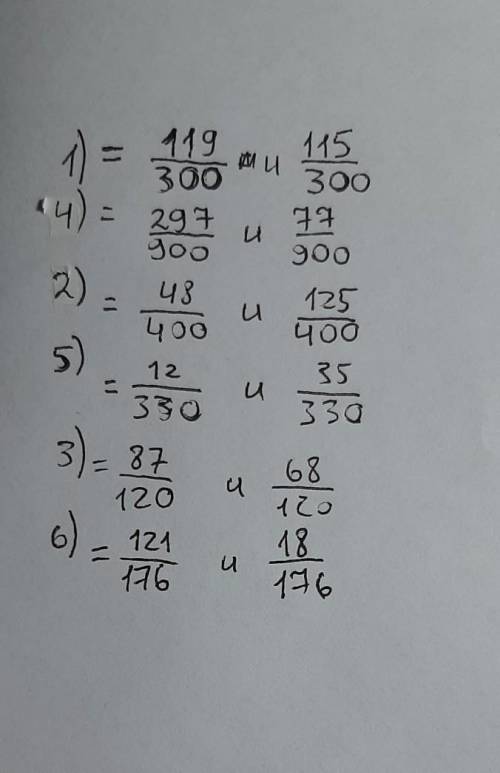 1) = 119/300 и 115/300
4) = 297/900 и 77/900
2) = 48/400 и 125/400
5) = 12/330 и 35/330
3) = 87/120 и 68/120
6) = 121/176 и 18/176